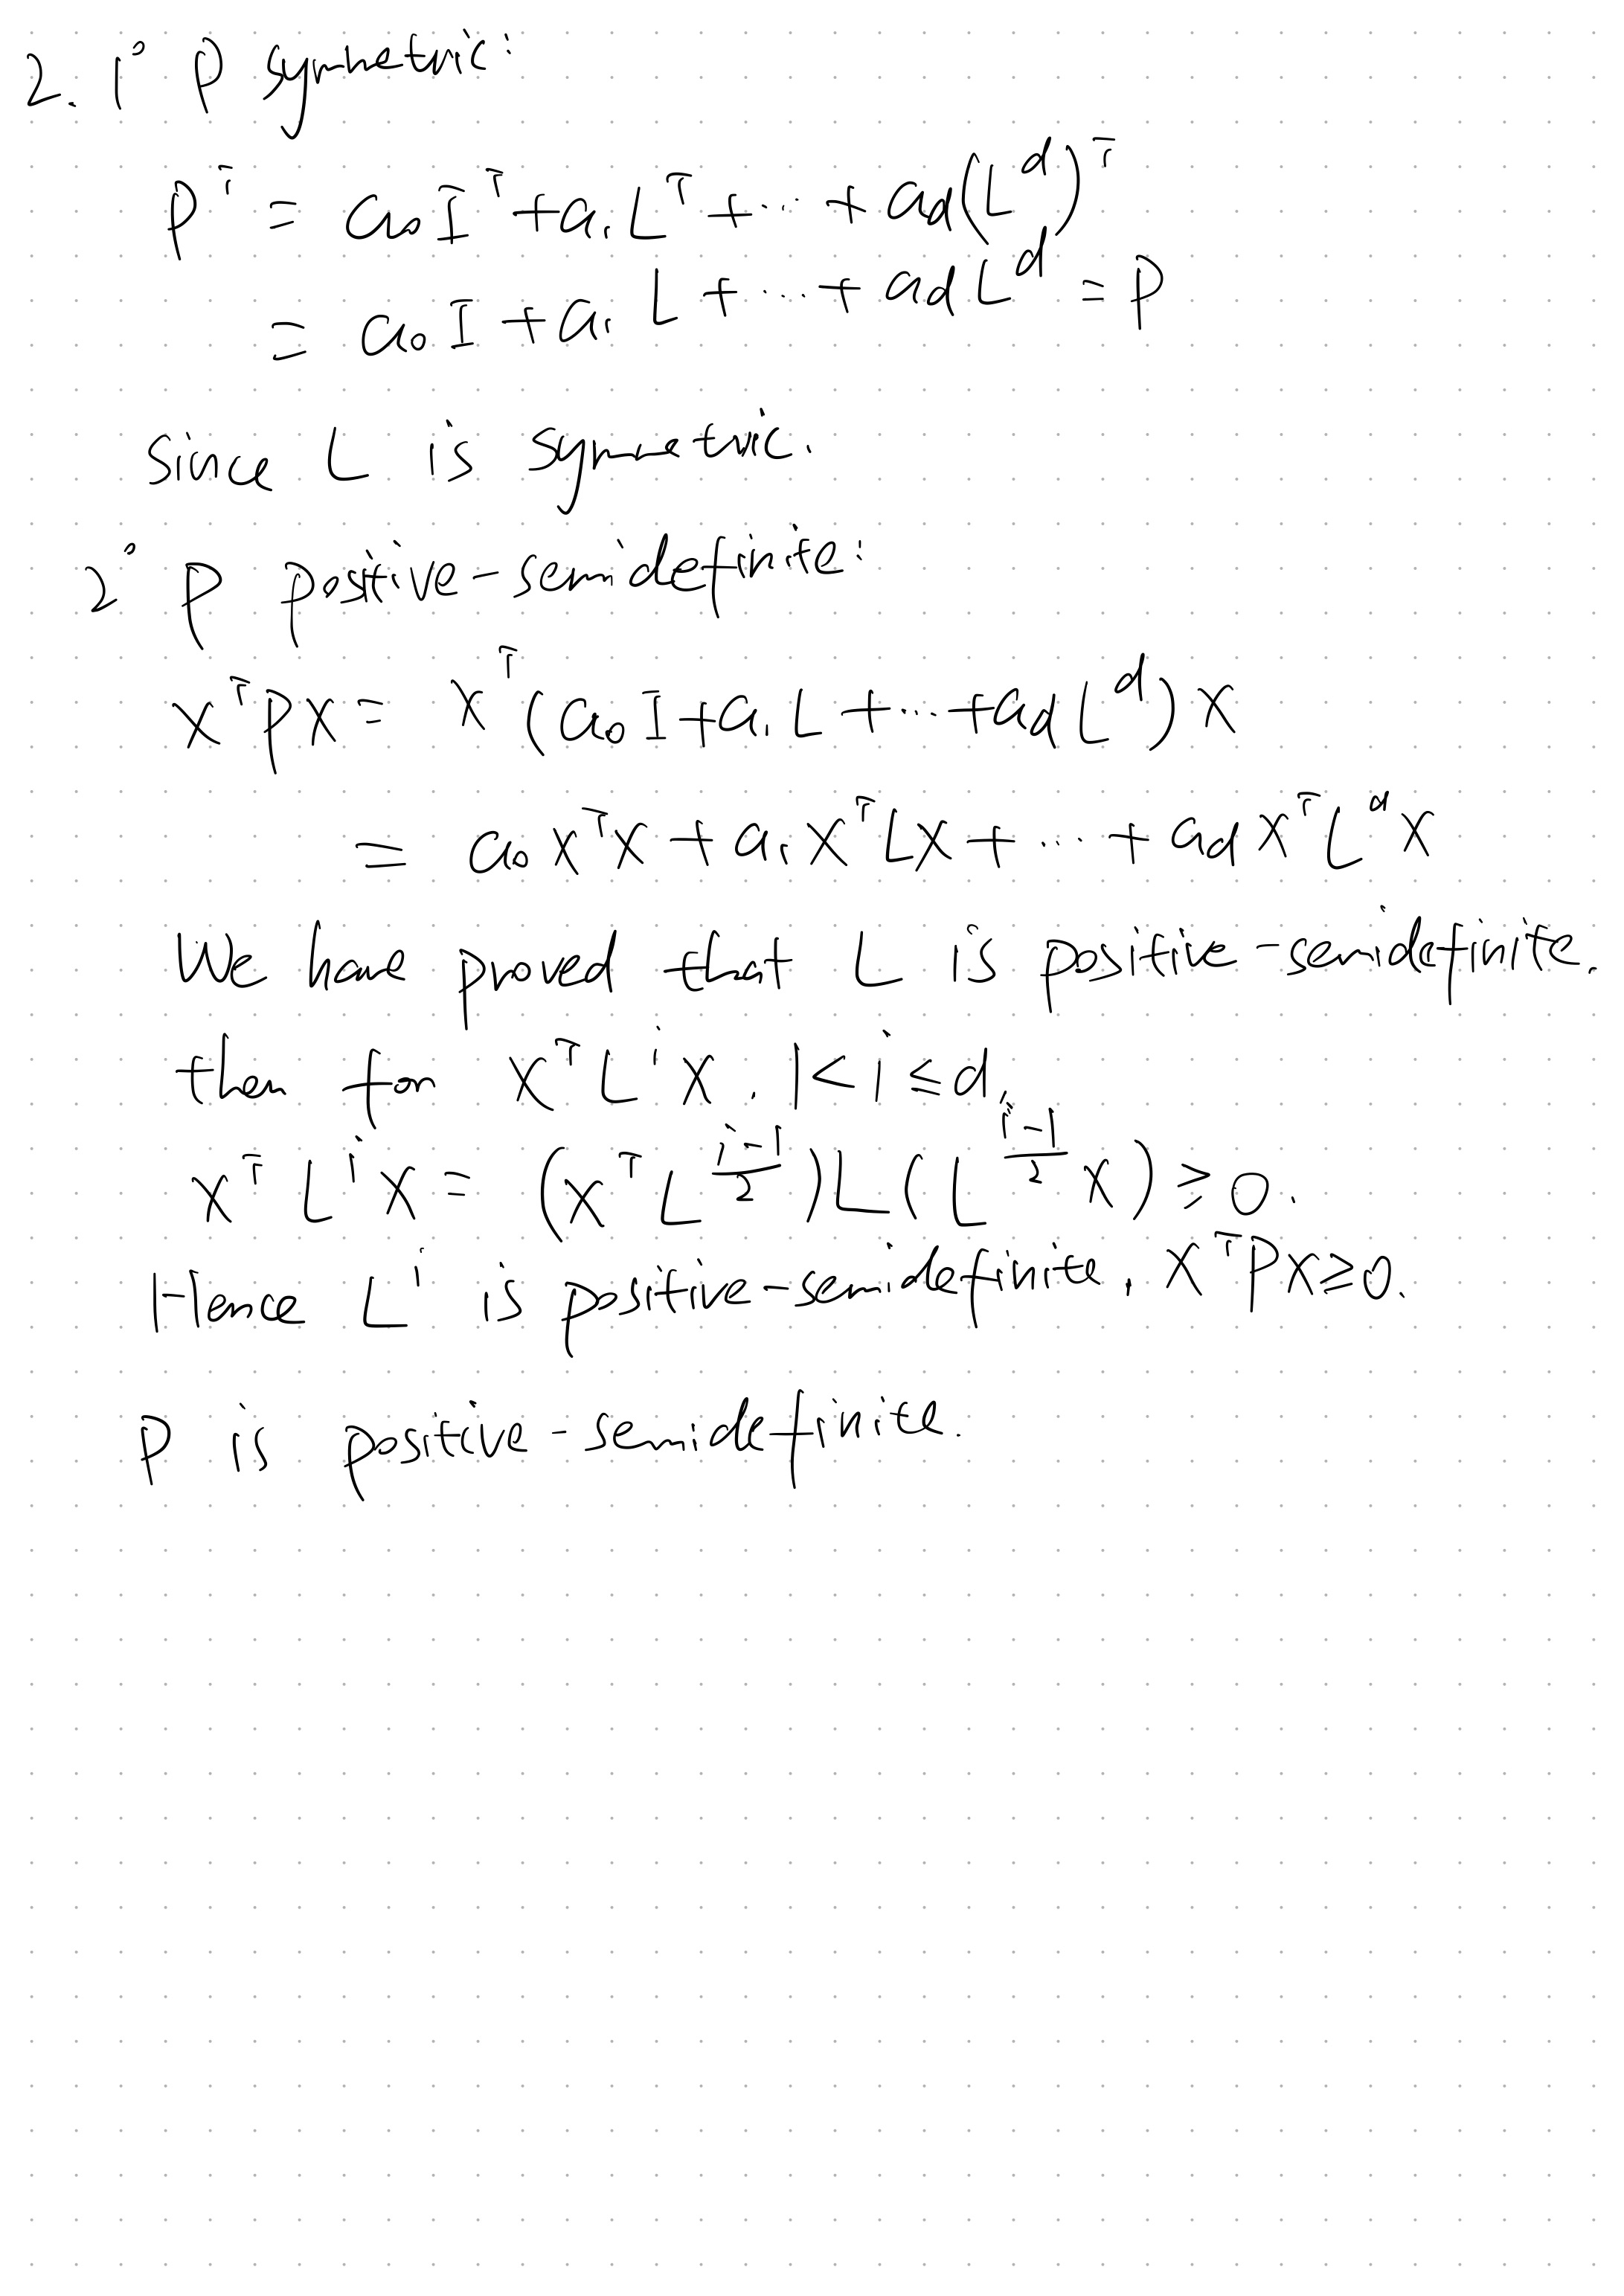 2. 1° P symmetric:
P^T = a₀I^T + a₁L^T + ··· + a_d(L^d)^T
= a₀I + a₁L + ··· + a_d L^d = P
Since L is symmetric.
2° P positive-semidefinite:
x^T P x = x^T (a₀I + a₁L + ··· + a_d L^d) x
= a₀ x^T x + a₁ x^T L x + ··· + a_d x^T L^d x
We have proved that L is positive-semidefinite.
then for x^T L^i x, 1 < i ≤ d,
x^T L^i x = (x^T L^{(i-1)/2}) L (L^{(i-1)/2} x) ≥ 0.
Hence L^i is positive-semidefinite, x^T P x ≥ 0.
P is positive-semidefinite.